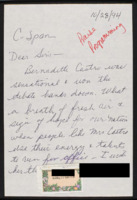 10/28/94
C-Span
Praise
Programming
Dear Sir—
Bernadette Castro was
sensational & won the
debate hands down. What
a breath of fresh air &
sign of hope for our nation
when people like Ms Castro
use their energy & talents
to run for office - I wish
her the